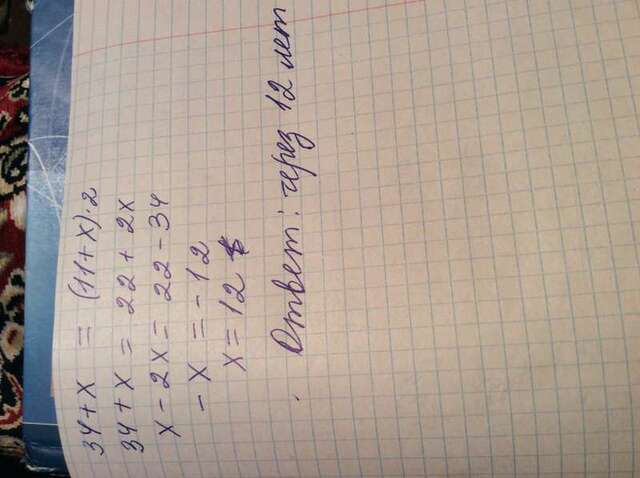 34+x = (11+x)·2
34+x = 22+2x
x-2x = 22-34
-x = -12
x = 12
Ответ: через 12 лет